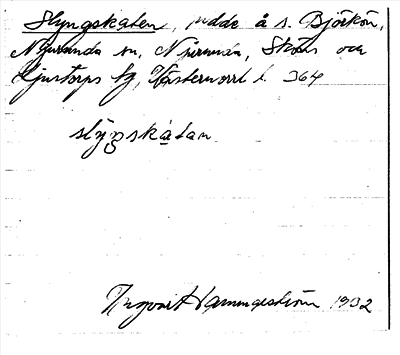 Slyngskaten, udde å s. Björkön,
Njurunda sn, Njurunda, Sköns och
Ljustorps tg, Västernorrl. l. 364
slyngskatan
Ingvart Hammarström 1932